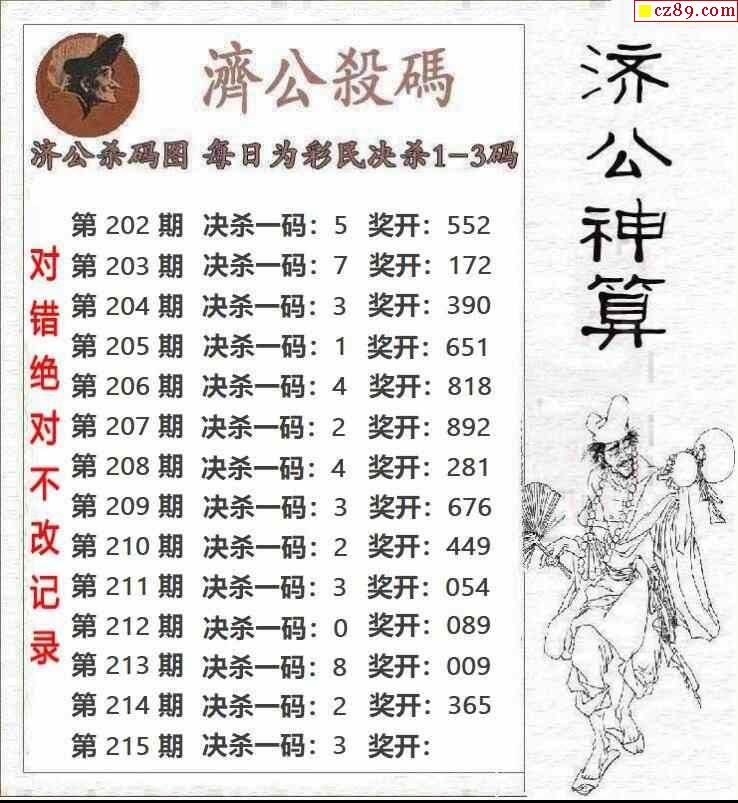 cz89.com
濟公殺碼
济公杀码图 每日为彩民决杀1-3码
第 202 期 决杀一码：5 奖开：552
第 203 期 决杀一码：7 奖开：172
第 204 期 决杀一码：3 奖开：390
第 205 期 决杀一码：1 奖开：651
第 206 期 决杀一码：4 奖开：818
第 207 期 决杀一码：2 奖开：892
第 208 期 决杀一码：4 奖开：281
第 209 期 决杀一码：3 奖开：676
第 210 期 决杀一码：2 奖开：449
第 211 期 决杀一码：3 奖开：054
第 212 期 决杀一码：0 奖开：089
第 213 期 决杀一码：8 奖开：009
第 214 期 决杀一码：2 奖开：365
第 215 期 决杀一码：3 奖开：
对错绝对不改记录
济公神算